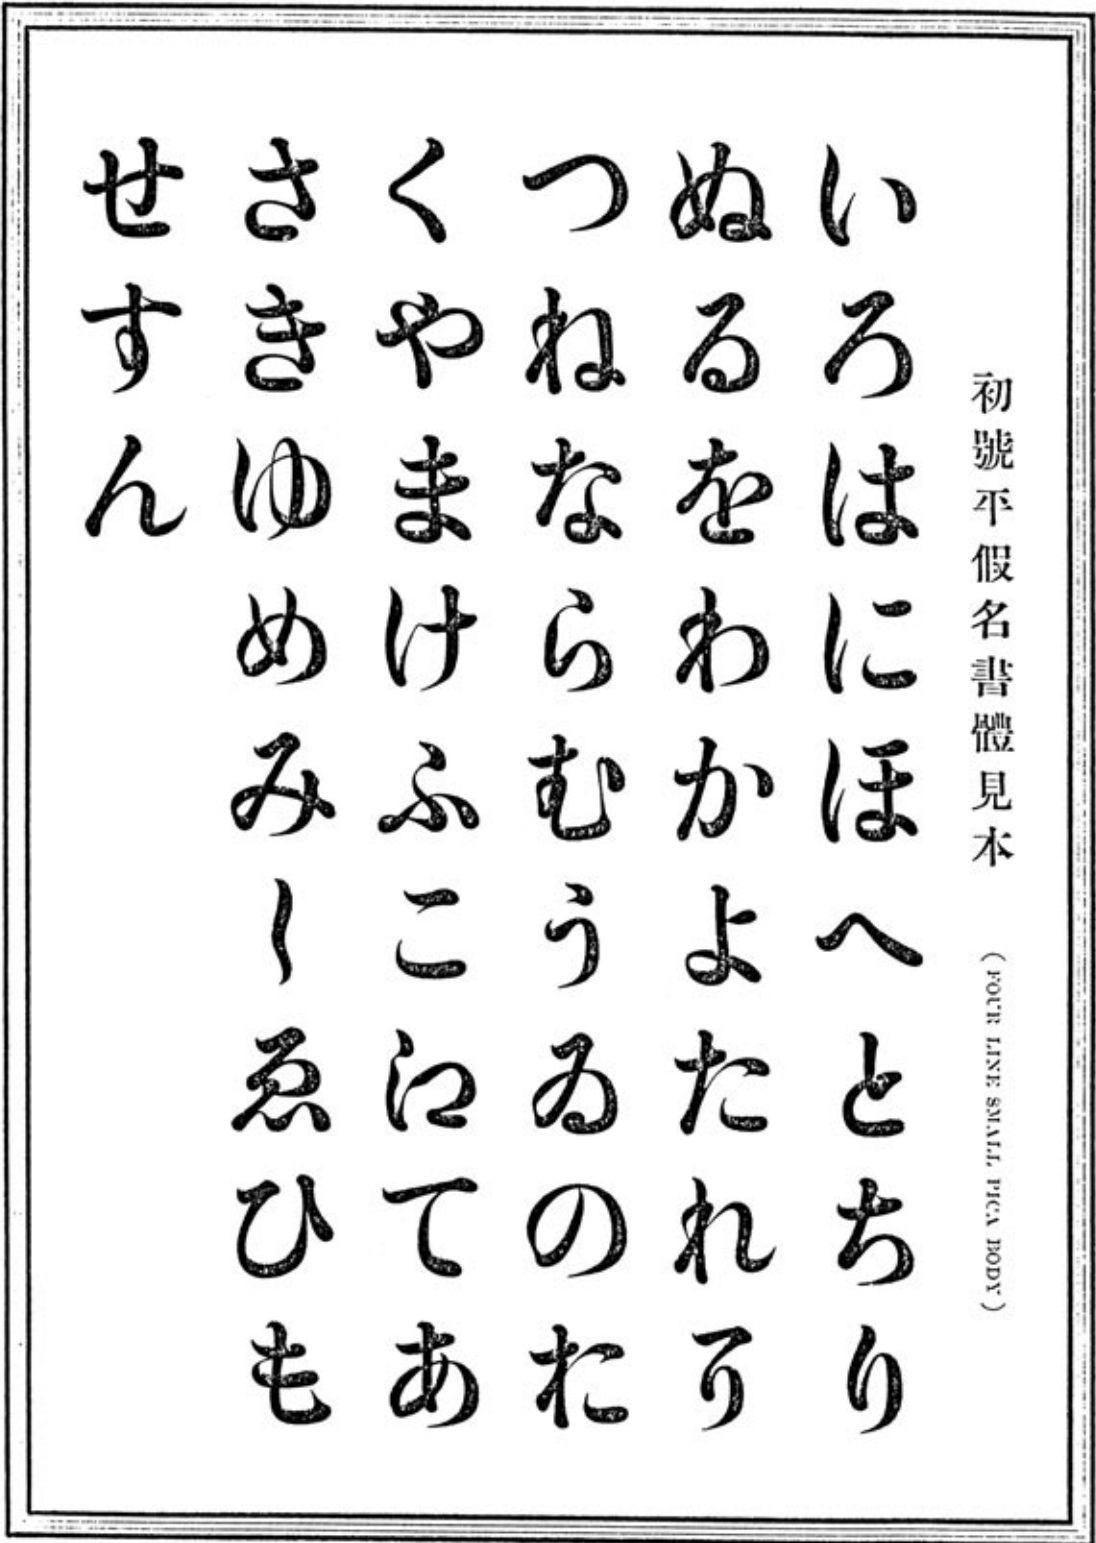 初號平假名書體見本 (FOUR LINE SMALL PICA BODY)
いろはにほへとちり
ぬるをわかよたれ𛁛
つねならむうゐの𛀕
くやまけふこ𛀁てあ
さきゆめみしゑひも
せすん